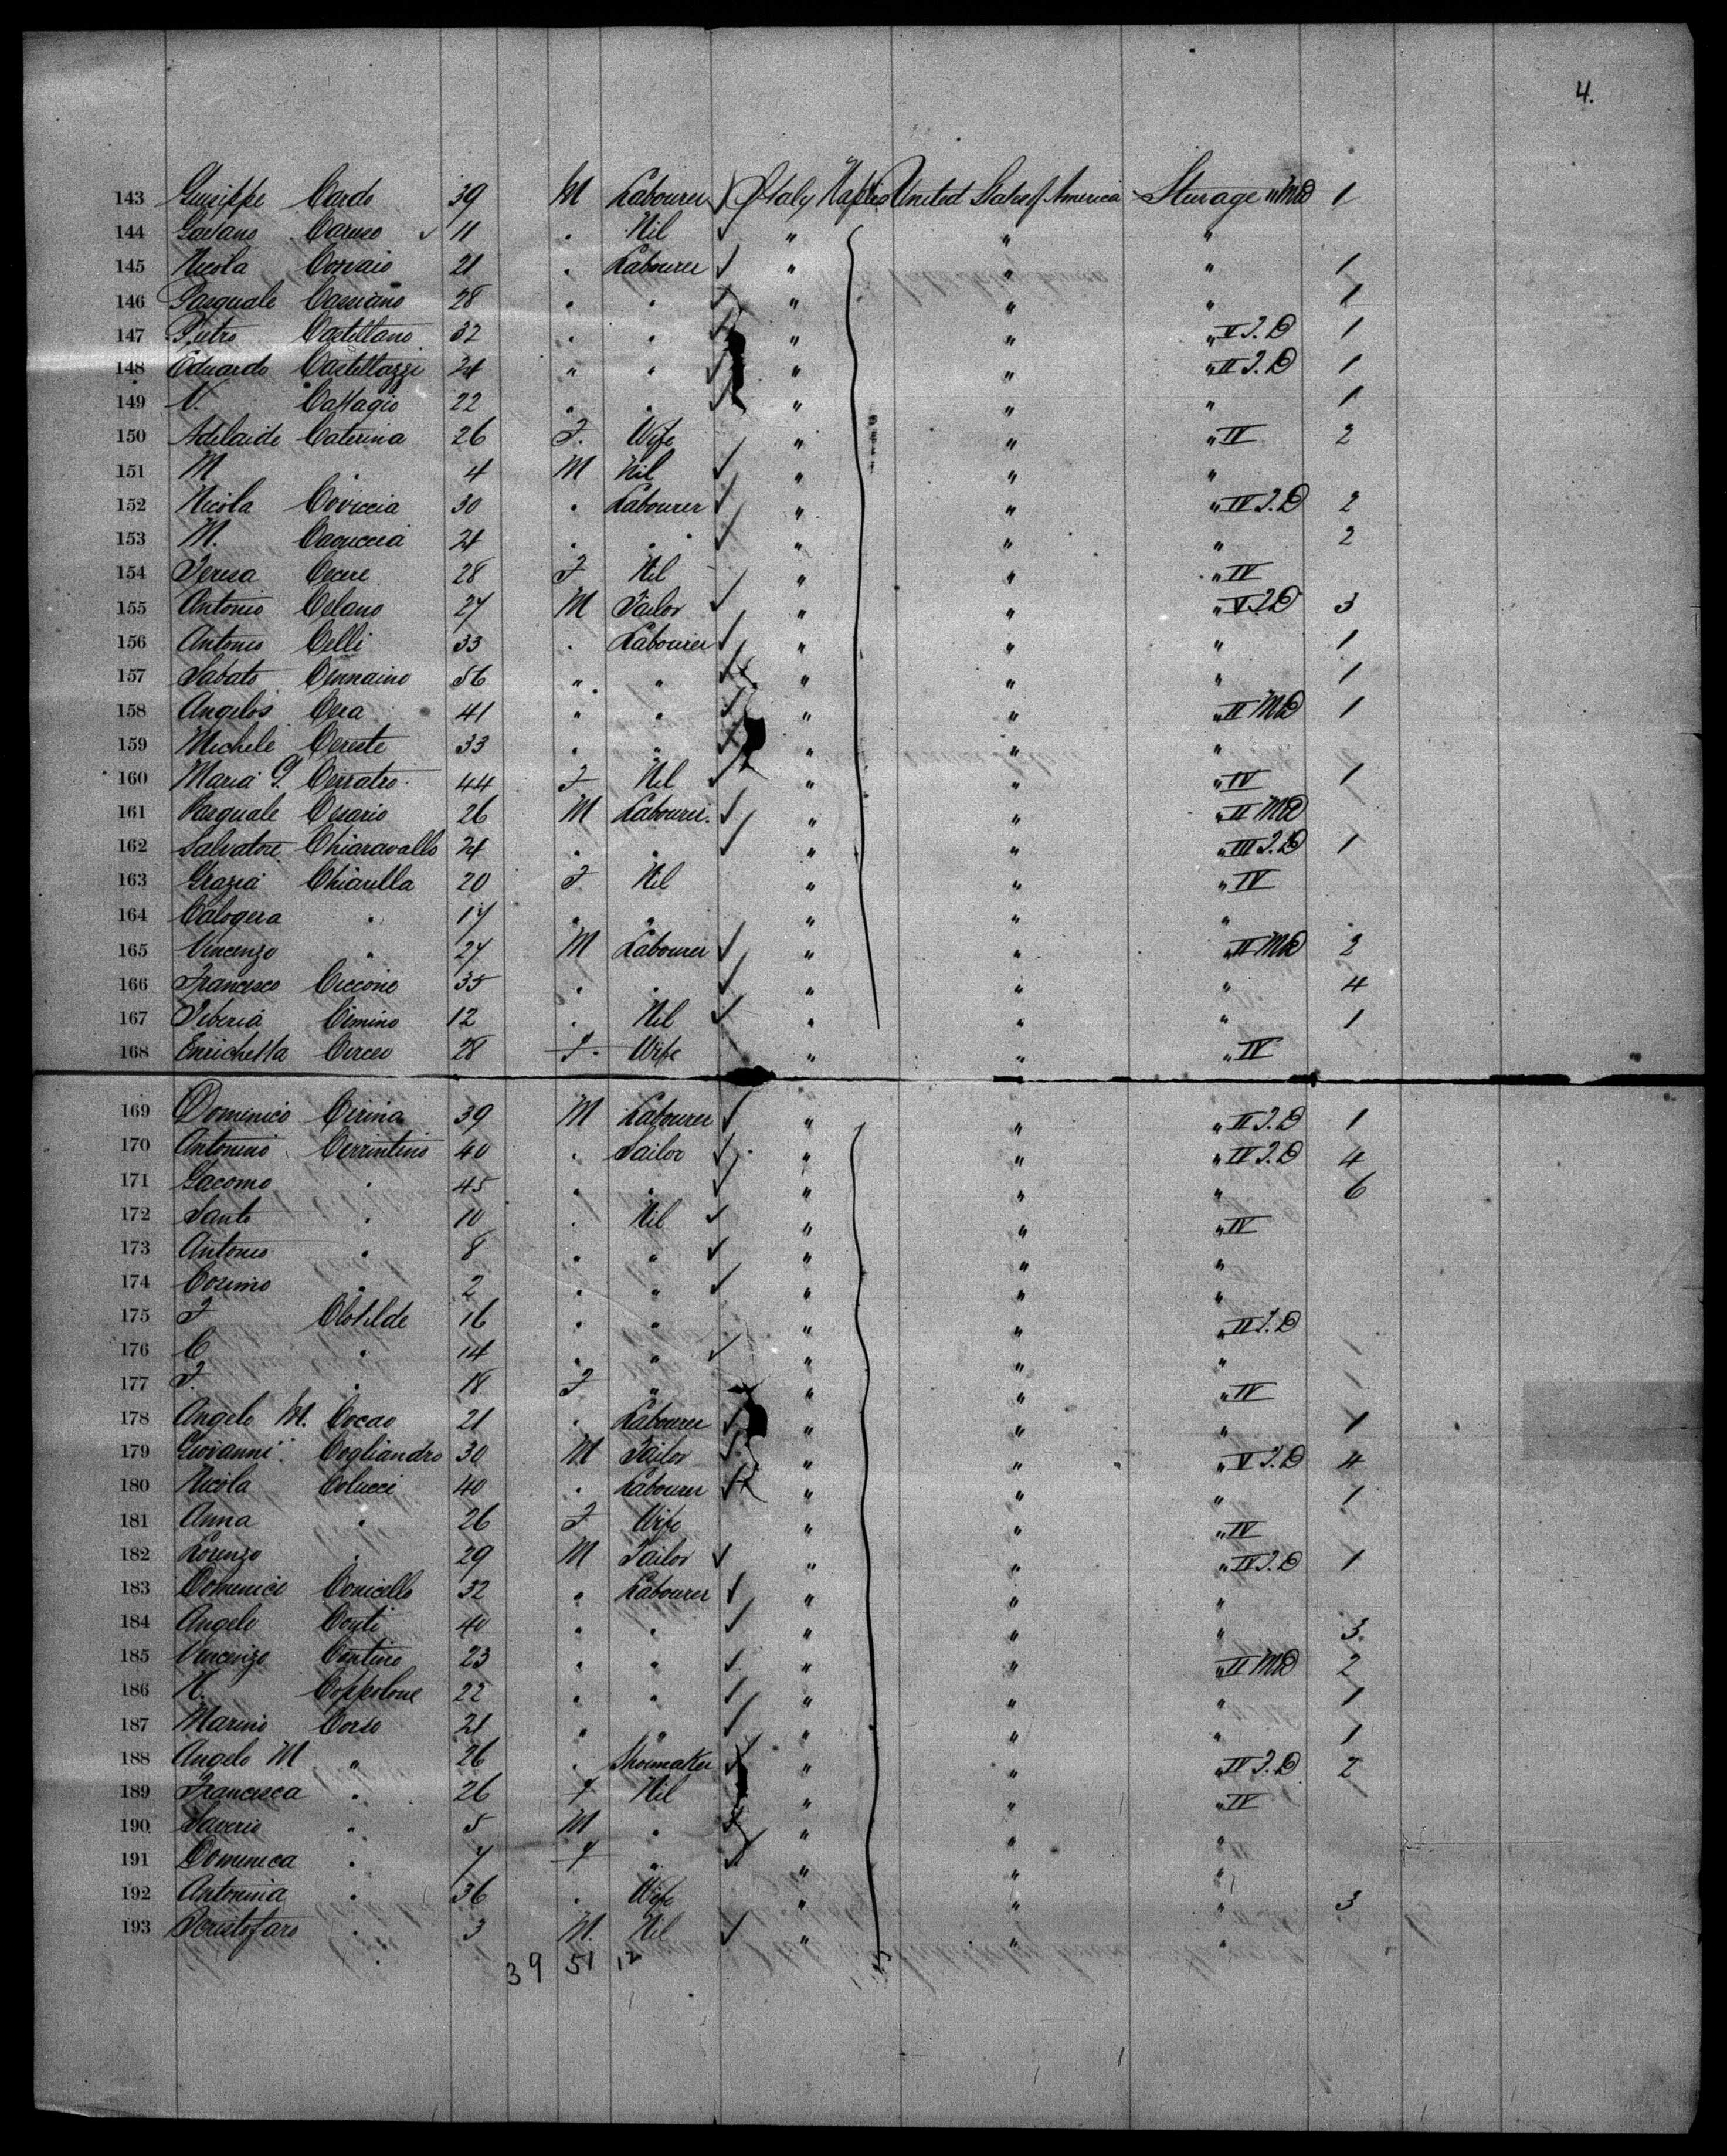 4.
143 Giuseppe Cardo 39 M Labourer Italy Naples United States of America Steerage II MD 1
144 Gaetano Caruso 11 " Nil " " "
145 Nicola Corvaio 21 " Labourer " " " 1
146 Pasquale Cassiano 28 " " " " " 1
147 Pietro Castellano 32 " " " " " V T.D 1
148 Eduardo Castellazzi 24 " " " " " II T.D 1
149 V. Cattagio 22 " " " " " 1
150 Adelaide Caterina 26 F. Wife " " " IV 2
151 M " 4 M Nil " " "
152 Nicola Coviccia 30 " Labourer " " " IV T.D 2
153 M. Caouccia 24 " " " " " 2
154 Teresa Cecere 28 F Nil " " " IV
155 Antonio Celano 27 M Tailor " " " V T.D 3
156 Antonio Celli 33 " Labourer " " " 1
157 Sabato Cennaino 56 " " " " " 1
158 Angelos Cera 41 " " " " " II MD 1
159 Michele Cereste 33 " " " " "
160 Maria G. Cerratro 44 F Nil " " " IV 1
161 Pasquale Cesario 26 M Labourer. " " " II MD
162 Salvatore Chiaravallo 24 " " " " " III T.D 1
163 Grazia Chiarella 20 F Nil " " " IV
164 Calogera " 17 " " " " "
165 Vincenzo " 27 M Labourer " " " II MD 2
166 Francesco Ciccone 35 " " " " " 4
167 Tiberia Cimino 12 " Nil " " " 1
168 Enrichetta Circeo 28 F. Wife " " " IV
169 Domenico Cirina 39 M Labourer " " " II T.D 1
170 Antonino Cerrintino 40 " Sailor " " " IV T.D 4
171 Gacomo " 45 " " " " " 6
172 Santo " 10 " Nil " " " IV
173 Antonio " 8 " " " " "
174 Cosimo " 2 " " " " "
175 F Clotilde 16 " " " " " II T.D
176 C " 14 " " " " "
177 F. " 18 F " " " " IV
178 Angelo M. Cocao 21 " Labourer " " " 1
179 Giovanni Cogliandro 30 M Tailor " " " V T.D 4
180 Nicola Colucci 40 " Labourer " " " 1
181 Anna " 26 F Wife " " " IV
182 Lorenzo " 29 M Tailor " " " IV T.D 1
183 Domenico Conicello 32 " Labourer " " "
184 Angelo Conti 40 " " " " " 3
185 Vincenzo Contino 23 " " " " " II MD 2
186 N. Coppolone 22 " " " " " 1
187 Marino Corso 21 " " " " " 1
188 Angelo M " 26 " Shoemaker " " " IV T.D 2
189 Francesca " 26 F Nil " " " IV
190 Saverio " 5 M " " " "
191 Domenica " 7 F " " " "
192 Antonina " 36 " Wife " " " 3
193 Cristofaro " 3 M. Nil " " "
39 51 12